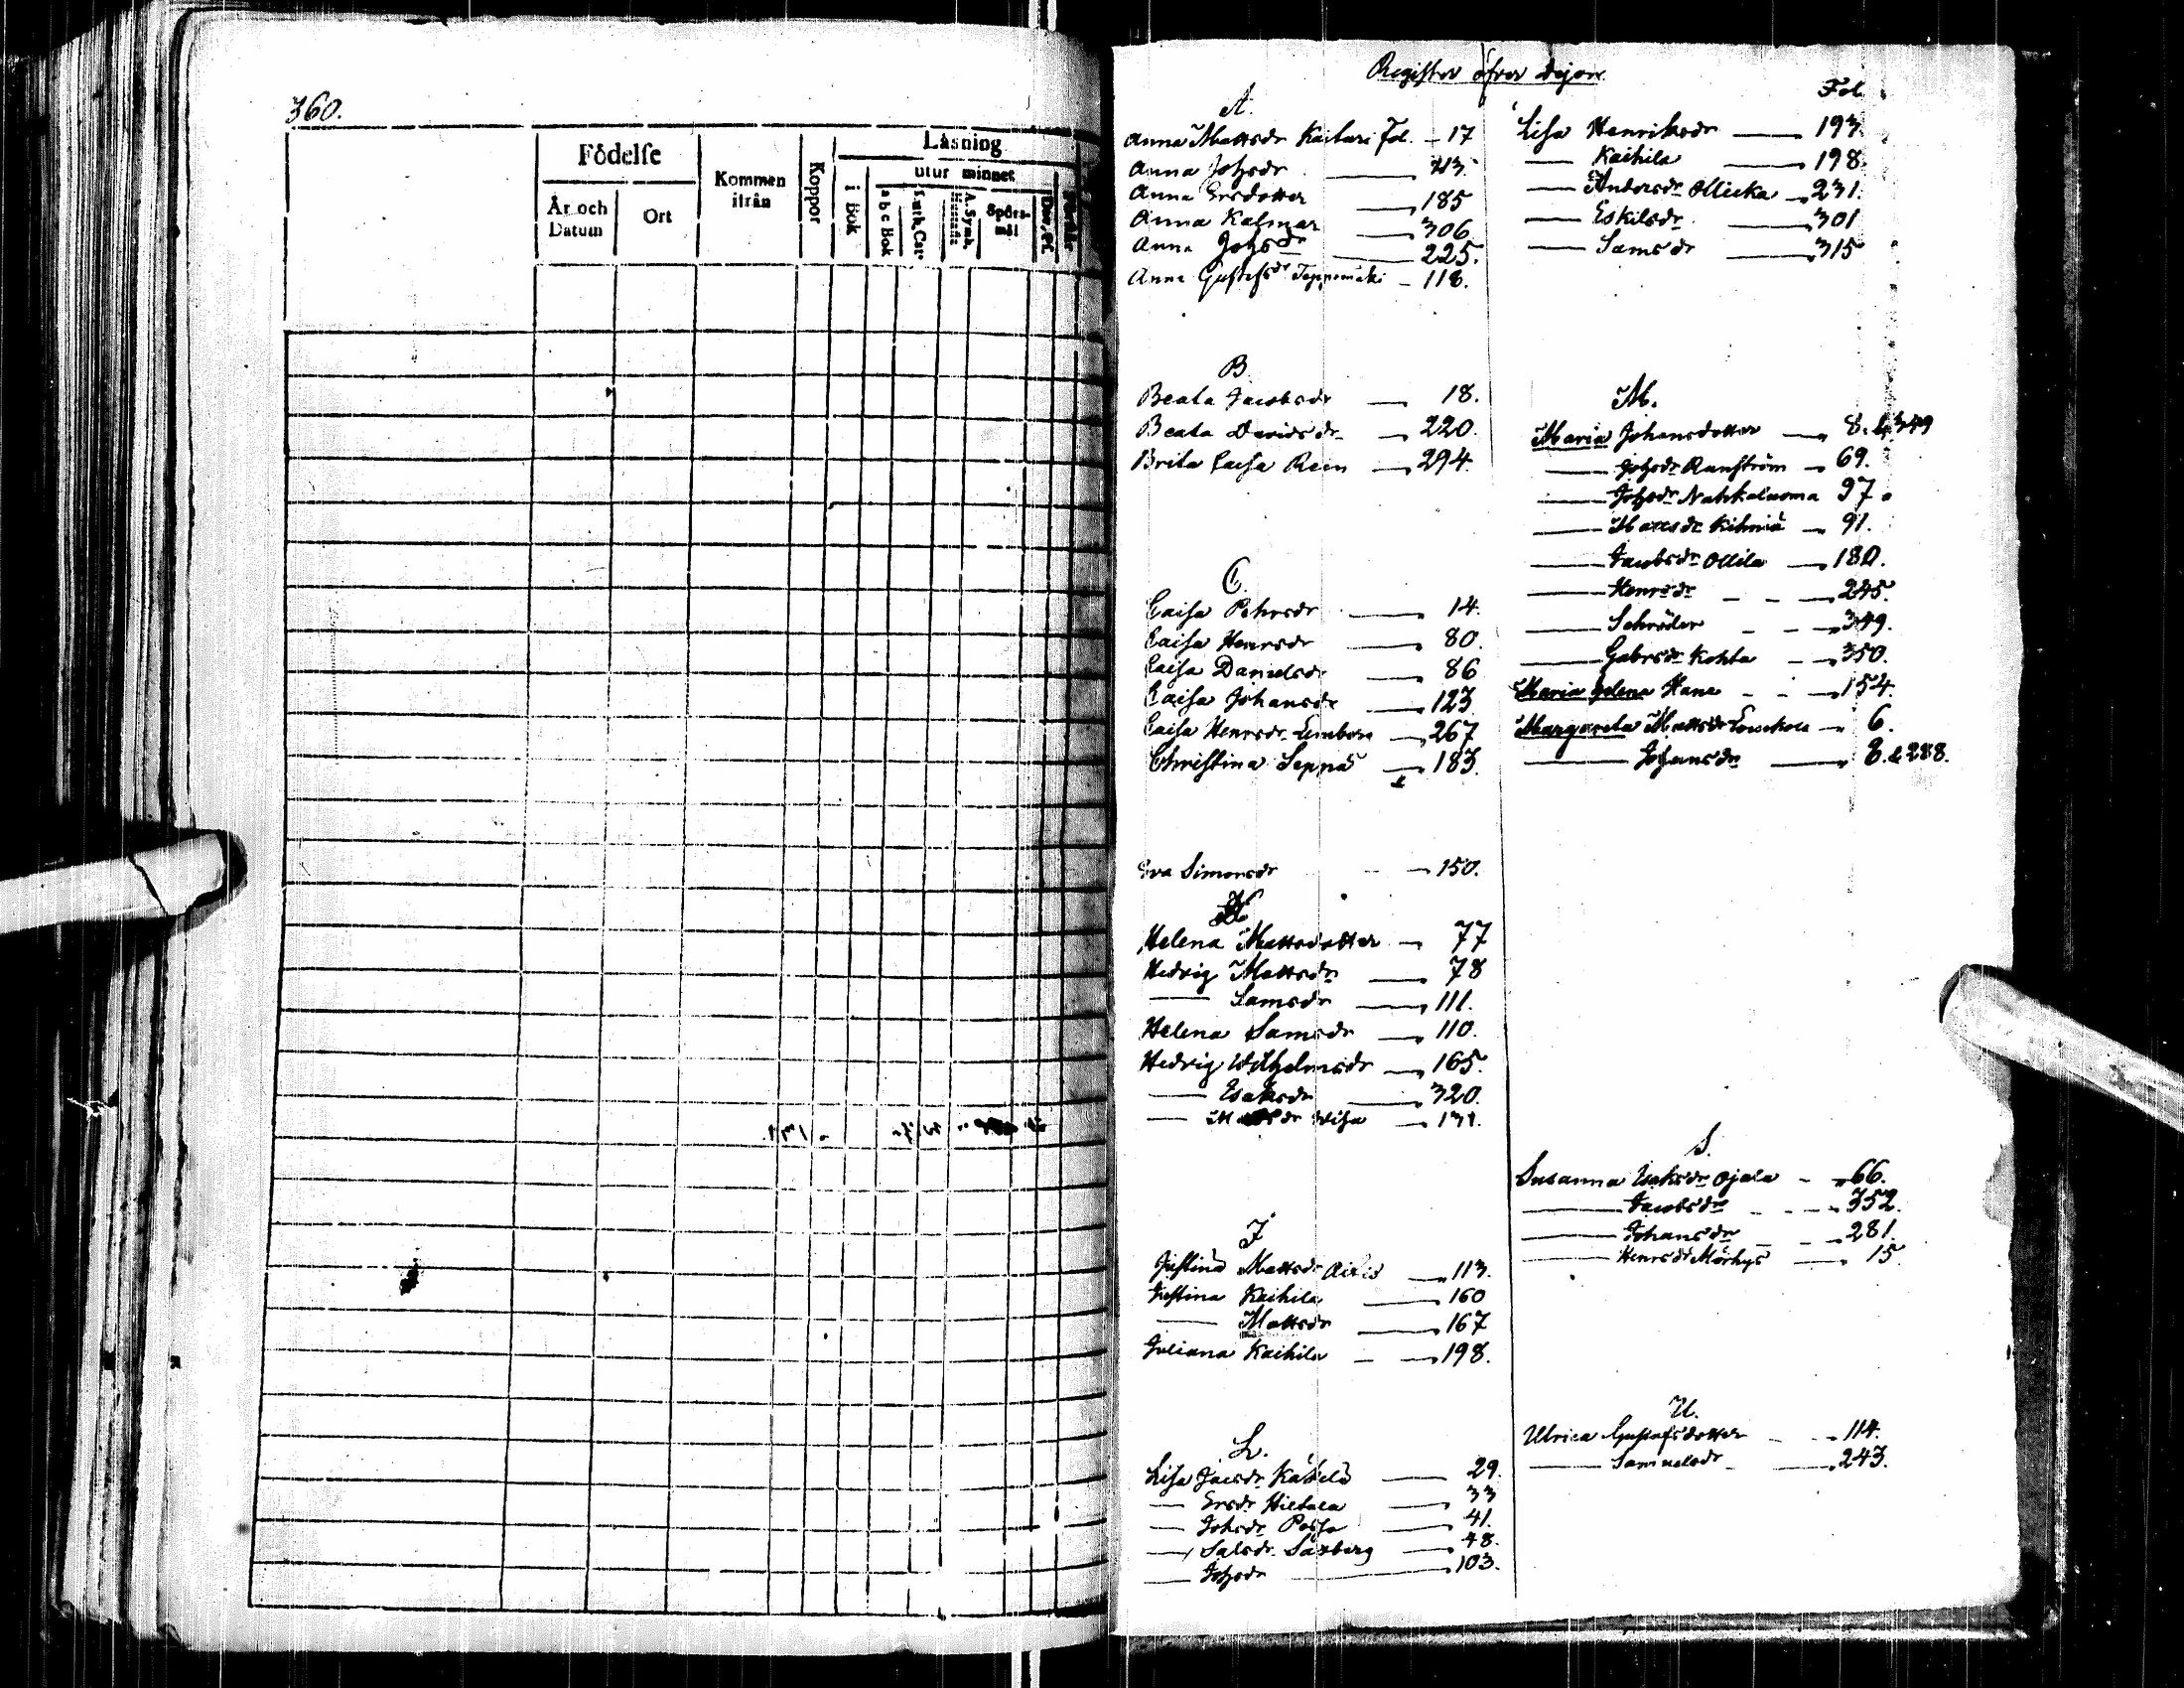 360.
Födelse
År och Datum
Ort
Kommen ifrån
Koppor
Läsning
i Bok
utur minnet
a b c Bok
Luth. Cat:
A. Symb.
Spörs-mål
Dav. Ps.
Register öfver
Fol.
A.
Anna Mattsdr Kaihari Fol. 17
Anna Johsdr 213.
Anna Ersdotter 185
Anna Kalmar 306
Anna Johsdr 225.
Anna Gustafsdr Seppemäki 118.
B.
Beata Jacobsdr 18.
Beata Davidsdr 220.
Brita Caisa Rein 294.
C.
Caisa Pehrsdr 14.
Caisa Henrsdr 80.
Caisa Danielsdr 86
Caisa Johansdr 123
Caisa Henrsdr 267
Christina Seppä 183.
Eva Simonsdr 150.
H
Helena Mattsdotter 77
Hedvig Mattsdr 78
— Samsdr 111.
Helena Samsdr 110.
Hedvig Wilhelmsdr 165.
— Isaksdr 320.
— dr Wisa 131.
J
Justina Mattsdr 113.
Justina Kaihila 160
— Mattsdr 167
Juliana Kaihila 198.
L.
Lisa Jacsdr Käkelä 29.
— Ersdr Hietala 33
— Johsdr 41.
— Salsdr Saxberg 48.
— Johsdr 103.
Lisa Henriksdr 193
— Kaihila 198
— Andersdr Ollicka 231.
— Eskilsdr 301
— Samsdr 315
M.
Maria Johansdotter 8. & 349
— Johsdr Ranström 69.
— Johsdr Nahkaluoma 97.
— Kihniä 91.
— Jacobsdr Ollila 180.
— Henrsdr 245.
— Schröder 349.
— Gabrsdr Kohta 350.
Maria Helena Hane 154.
Margareta Mattsdr 6.
— Johansdr 8. & 288.
S.
Susanna Isaksdr Ojala 66.
— Jacobsdr 352.
— Johansdr 281.
— Henrsdr Mörhys 15.
U.
Ulrica Gustafsdotter 114.
— Samuelsdr 243.